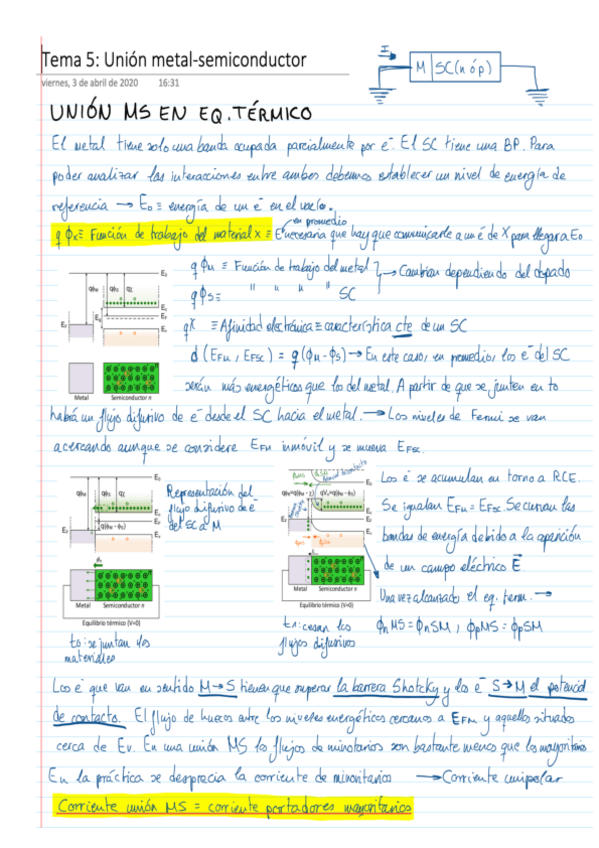 Tema 5: Unión metal-semiconductor
viernes, 3 de abril de 2020 16:31
I
M SC(n ó p)
UNIÓN MS EN EQ. TÉRMICO
El metal tiene solo una banda ocupada parcialmente por e⁻. El SC tiene una BP. Para
poder analizar las interacciones entre ambos debemos establecer un nivel de energía de
referencia → E₀ ≡ energía de un e⁻ en el vacío.
en promedio
qϕx ≡ Función de trabajo del material x ≡ E necesaria que hay que comunicarle a un e⁻ de X para llegar a E₀
qϕM ≡ Función de trabajo del metal
qϕS ≡ " " " " SC
→ Cambian dependiendo del dopado
qχ ≡ Afinidad electrónica ≡ característica cte de un SC
d(EFM, EFSC) = q(ϕM-ϕS) → En este caso, en promedio, los e⁻ del SC
serán más energéticos que los del metal. A partir de que se junten en t₀
habrá un flujo difusivo de e⁻ desde el SC hacia el metal. → Los niveles de Fermi se van
acercando aunque se considere EFM inmóvil y se mueva EFSC.
E₀
qϕM qϕS qχ
Ec
EF
Ev
Metal Semiconductor n
Representación del
flujo difusivo de e⁻
del SC a M
E₀
qϕM qϕS qχ
q(ϕM - ϕS)
Metal Semiconductor n
Equilibrio térmico (V=0)
t₀: se juntan los
materiales
E₀
Ec
EF
Ev
Metal Semiconductor n
Equilibrio térmico (V=0)
t₁: cesan los
flujos difusivos
Los e⁻ se acumulan en torno a RCE.
Se igualan EFM = EFSC. Se curvan las
bandas de energía debido a la aparición
de un campo eléctrico E.
Una vez alcanzado el eq. term. →
ϕnMS = ϕnSM, ϕpMS = ϕpSM
Los e⁻ que van en sentido M→S tienen que superar la barrera Shotcky y los e⁻ S→M el potencial
de contacto. El flujo de huecos entre los niveles energéticos cercanos a EFM y aquellos situados
cerca de Ev. En una unión MS los flujos de minotarios son bastante menos que los mayoritarios
En la práctica se desprecia la corriente de minoritarios → Corriente unipolar
Corriente unión MS = corriente portadores mayoritarios